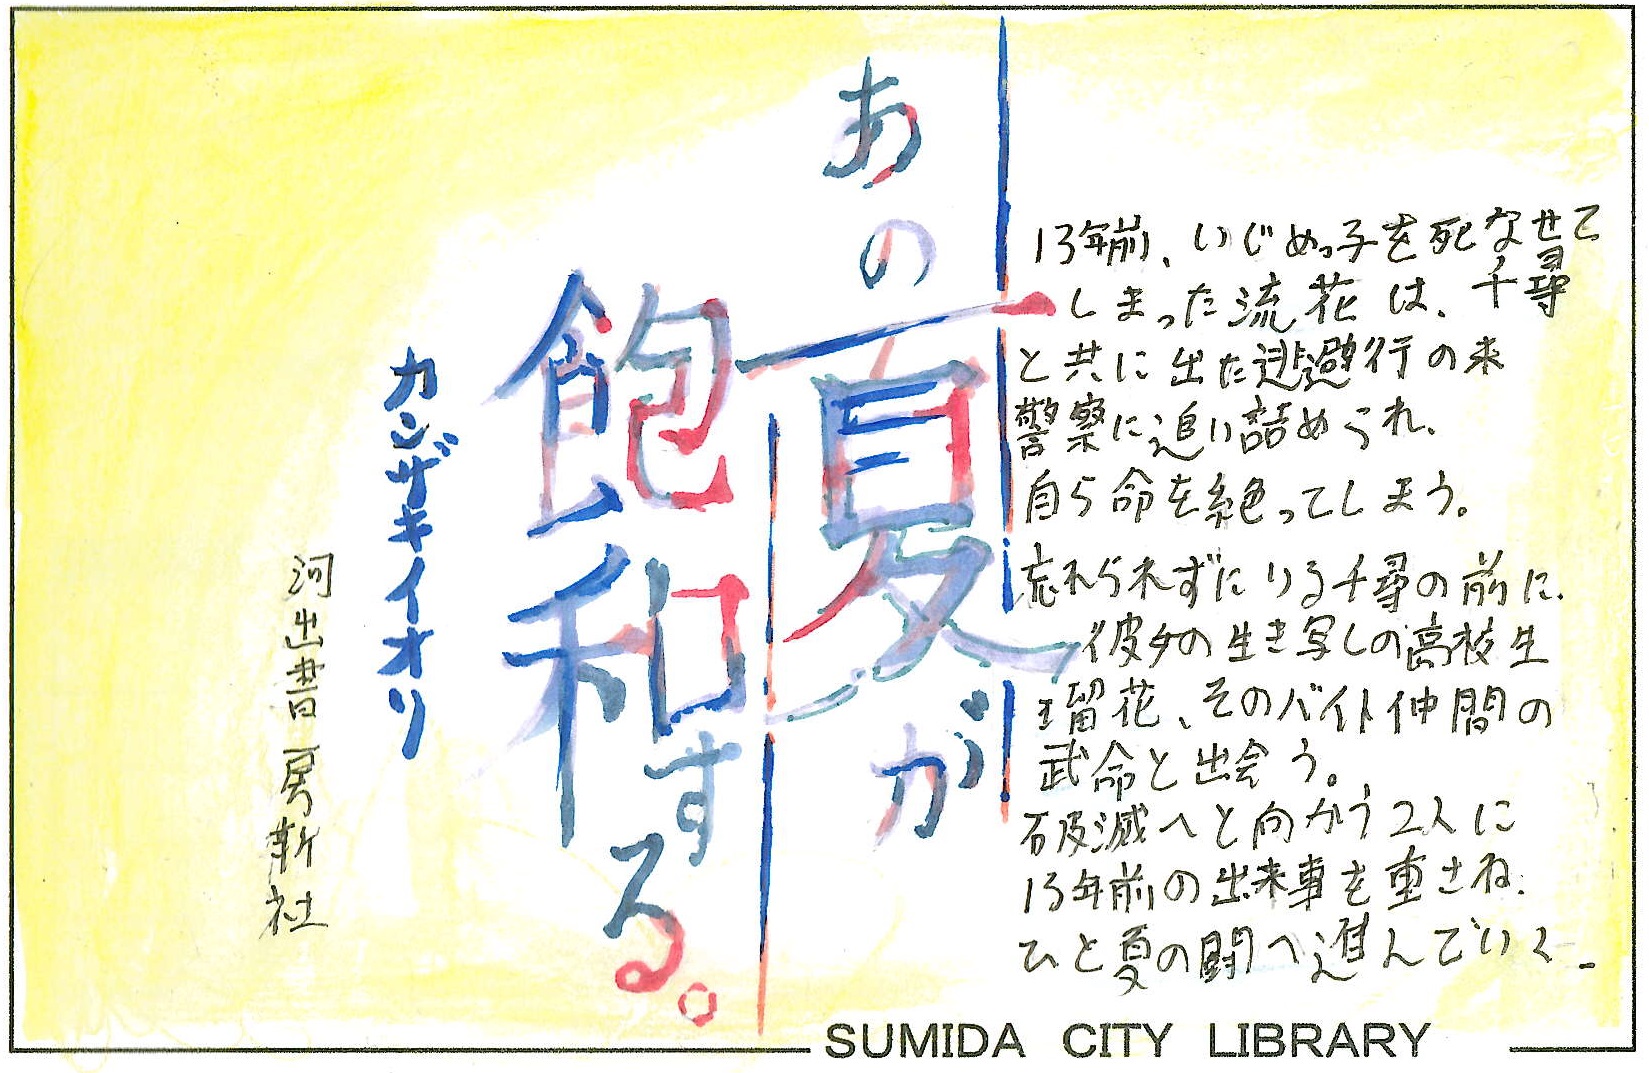 あの
夏が
飽和する。
カンザキイオリ
河出書房新社
13年前、いじめっ子を死なせて
しまった流花は、千尋
と共に出た逃避行の末
警察に追い詰められ、
自ら命を絶ってしまう。
忘れられずにいる千尋の前に、
彼女の生き写しの高校生
瑠花、そのバイト仲間の
武命と出会う。
破滅へと向かう2人に
13年前の出来事を重さね、
ひと夏の闘へ進んでいく_
SUMIDA CITY LIBRARY